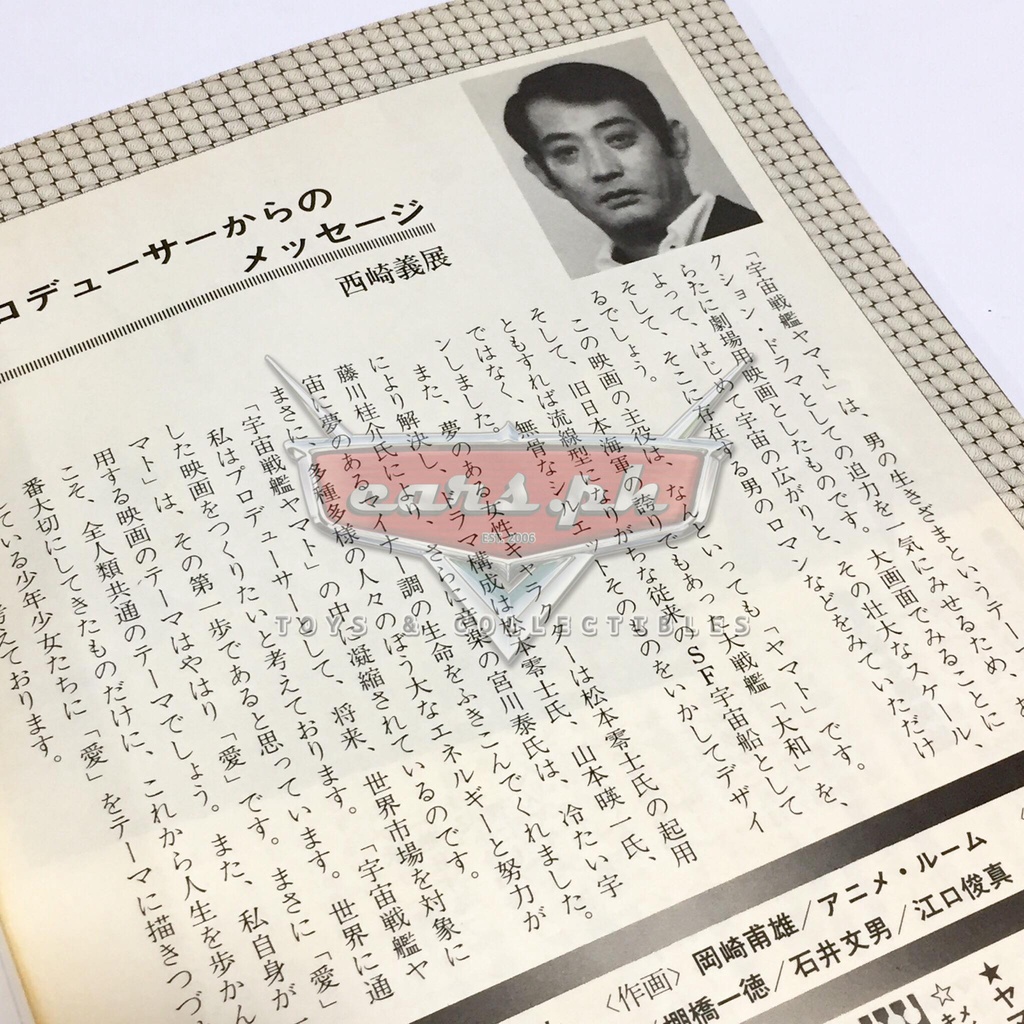 ロデューサーからの
メッセージ
西崎義展
「宇宙戦艦ヤマト」は、男の生きざまというテー
クション・ドラマとしての迫力を一気にみせるため、
らたに劇場用映画としたものです。大画面でみることに
よって、はじめて宇宙の広がりと、その壮大なスケール、
そして、そこに存在する男のロマンなどをみていただけ
るでしょう。
この映画の主役は、なんといっても大戦艦「大和」です。
そして、旧日本海軍の誇りでもあった「ヤマト」を、
ともすれば流線型になりがちな従来のSF宇宙船として
ではなく、無骨なシルエットそのものをいかしてデザイ
ンしました。
また、夢のある女性キャラクターは松本零士氏の起用
により解決し、ドラマ構成は松本零士氏、山本暎一氏、
藤川桂介氏により、さらに音楽の宮川泰氏は、冷たい宇
宙に夢のあるマイナー調の生命をふきこんでくれました。
まさに、多種多様の人々のぼう大なエネルギーと努力が
「宇宙戦艦ヤマト」の中に凝縮されているのです。
私はプロデューサーとして、将来、世界市場を対象に
した映画をつくりたいと考えております。「宇宙戦艦ヤ
マト」は、その第一歩であると思っています。世界に通
用する映画のテーマはやはり「愛」です。まさに「愛」
こそ、全人類共通のテーマでしょう。また、私自身が一
番大切にしてきたものだけに、これから人生を歩かん
ている少年少女たちに「愛」をテーマに描きつづ
考えております。
〈作画〉 岡崎甫雄/アニメ・ルーム
棚橋一徳/石井文男/江口俊真
cars.pk
EST. 2006
TOYS & COLLECTIBLES